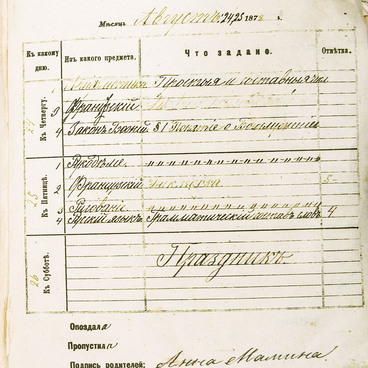 Мѣсяцъ Августъ 24,25 187 г.
Къ какому дню. Изъ какого предмета. Что задано. Отмѣтка.
24 Къ Четвергу.
Простыя и составныя
Французскій
4 Законъ Божій § 1 Понятіе о Богослуженіи
25 Къ Пятницѣ.
1 Рукодѣліе. " " " " " " "
2 Французскій Диктовка 5
3 Рисованіе " " " " " " "
4 Русскій языкъ Грамматическій составъ словъ 4
26 Къ Субботѣ.
Праздникъ.
Опоздала
Пропустила
Подпись родителей: Анна Мамина.